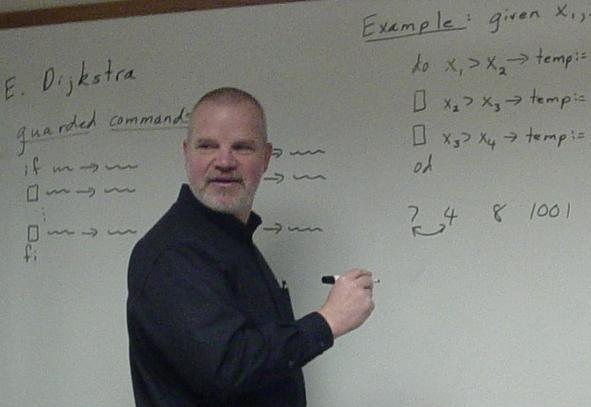 E. Dijkstra
guarded command
if → →
▯ → →
⋮
▯ → →
fi
Example: given x₁,
do x₁ > x₂ → temp:=
▯ x₂ > x₃ → temp:=
▯ x₃ > x₄ → temp:=
od
7 4 8 1001